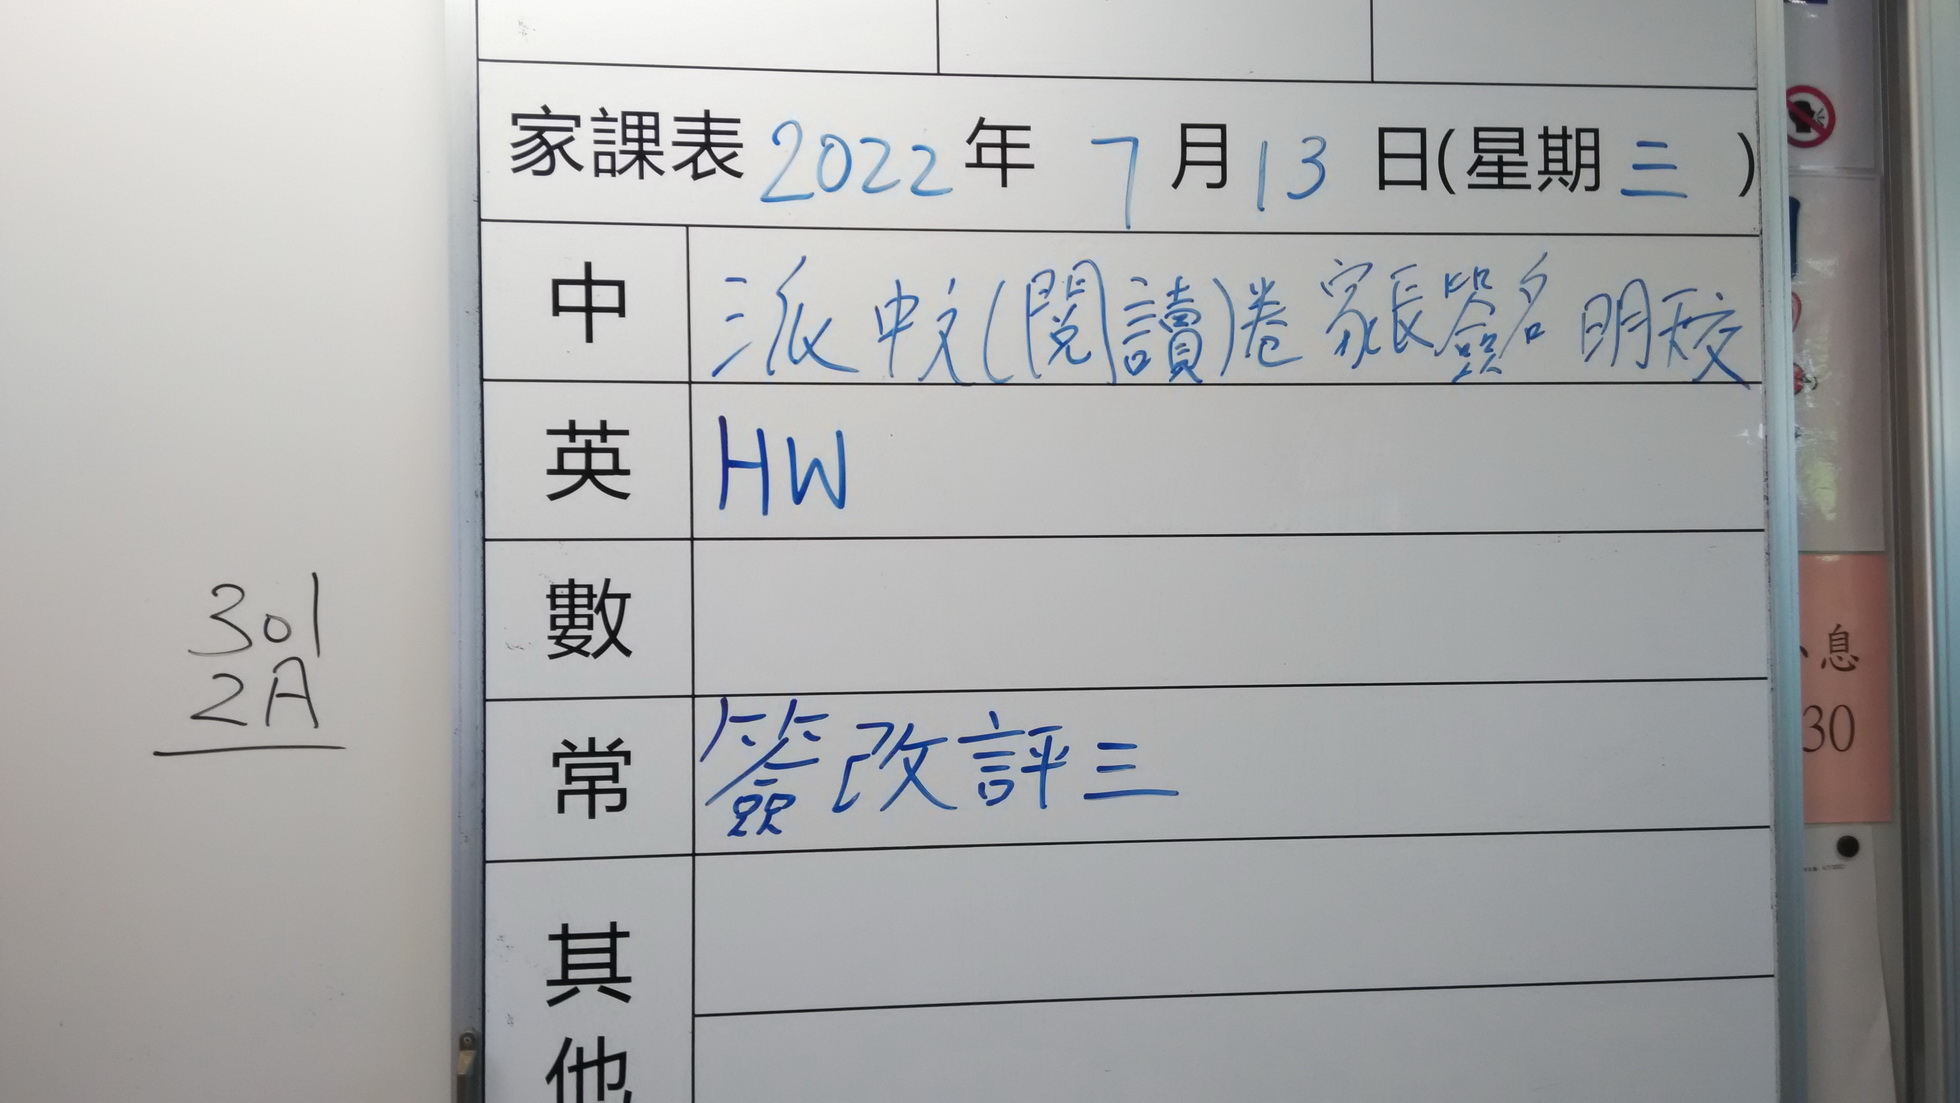 家課表 2022 年 7 月 13 日(星期 三 )
中 派中文(閱讀)卷 家長簽名 明天交
英 HW
數
常 簽改評三
其他
301
2A
息
30